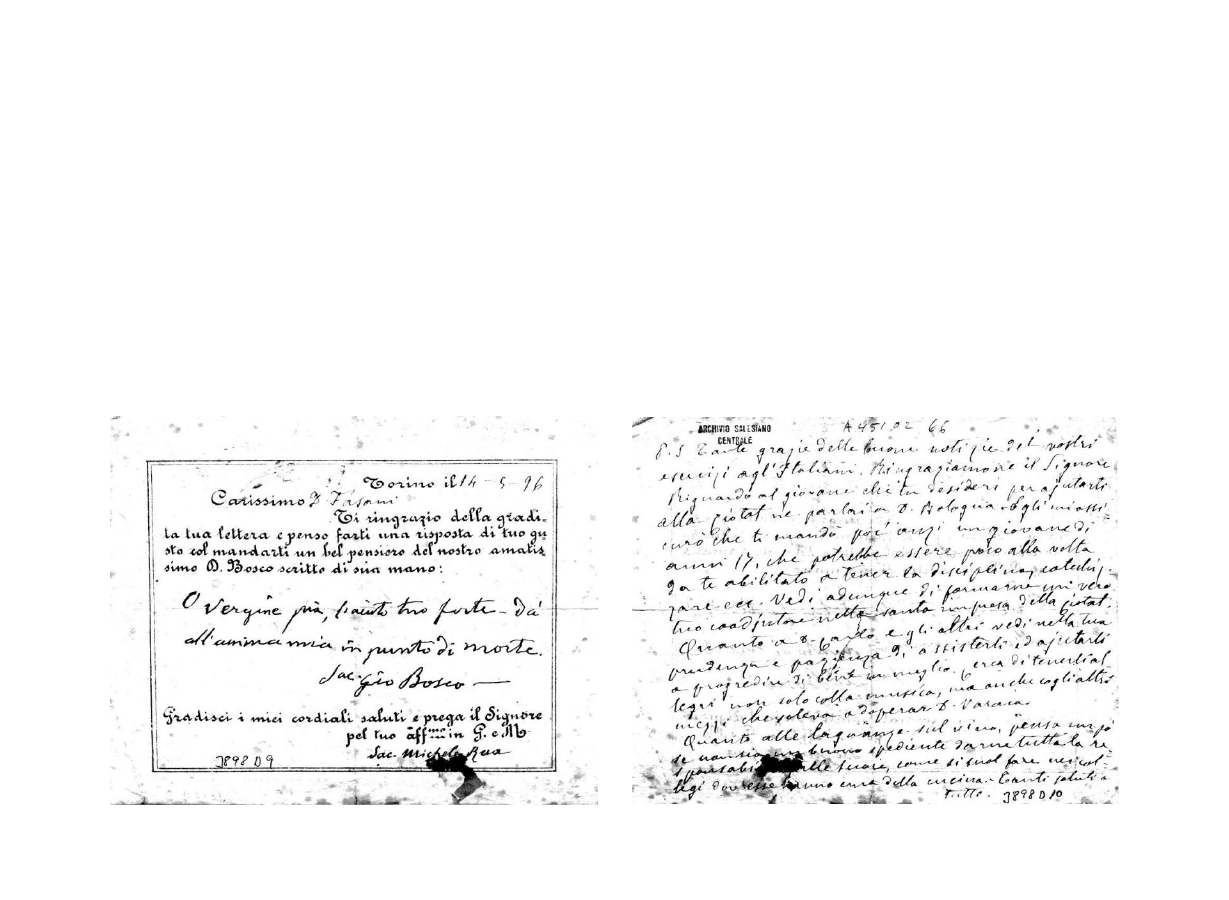 Torino il 14 - 5 - 96
Carissimo D. Fasani
Ti ringrazio della gradi-
ta tua lettera e penso farti una risposta di tuo gu
sto col mandarti un bel pensiero del nostro amatis
simo D. Bosco scritto di sua mano:
O Vergine pia, l'aiuto tuo forte - dà
all'anima mia in punto di morte.
Sac. Gio Bosco
Gradisci i miei cordiali saluti e prega il Signore
pel tuo aff.mo in G. e M.
Sac. Michele Rua
3898 D 9
ARCHIVIO SALESIANO
CENTRALE
A4510266
P.S Tante grazie delle buone notizie dei vostri
esercizi agl'Italiani. Ringraziamone il Signore
Riguardo al giovane che tu desideri per ajutarti
alla ne parlai a D. Bologna ed egli mi assi-
curò che ti mandò poi anzi un giovane di
anni 17, che potrebbe essere poco alla volta
da te abilitato a tener la disciplina, catechiz-
zare ecc. Vedi adunque di formarne un vero
tuo coadjutore nella santa impresa della
Quanto a D. e gli altri vedi nella tua
prudenza e pazienza di assisterli ed ajutarli
a progredire di bene in meglio. Cerca di tenerli al-
legri non solo colla musica, ma anche cogli altri
mezzi che soleva adoperar D. Varaia.
Quanto alle lagnanze sul vino, pensa un po'
se non sia un buono spediente darne tutta la re-
sponsabi alle suore, come si suol fare nei col-
legi dov'esse hanno cura della cucina. Tanti saluti a
tutti.
3898 D 10